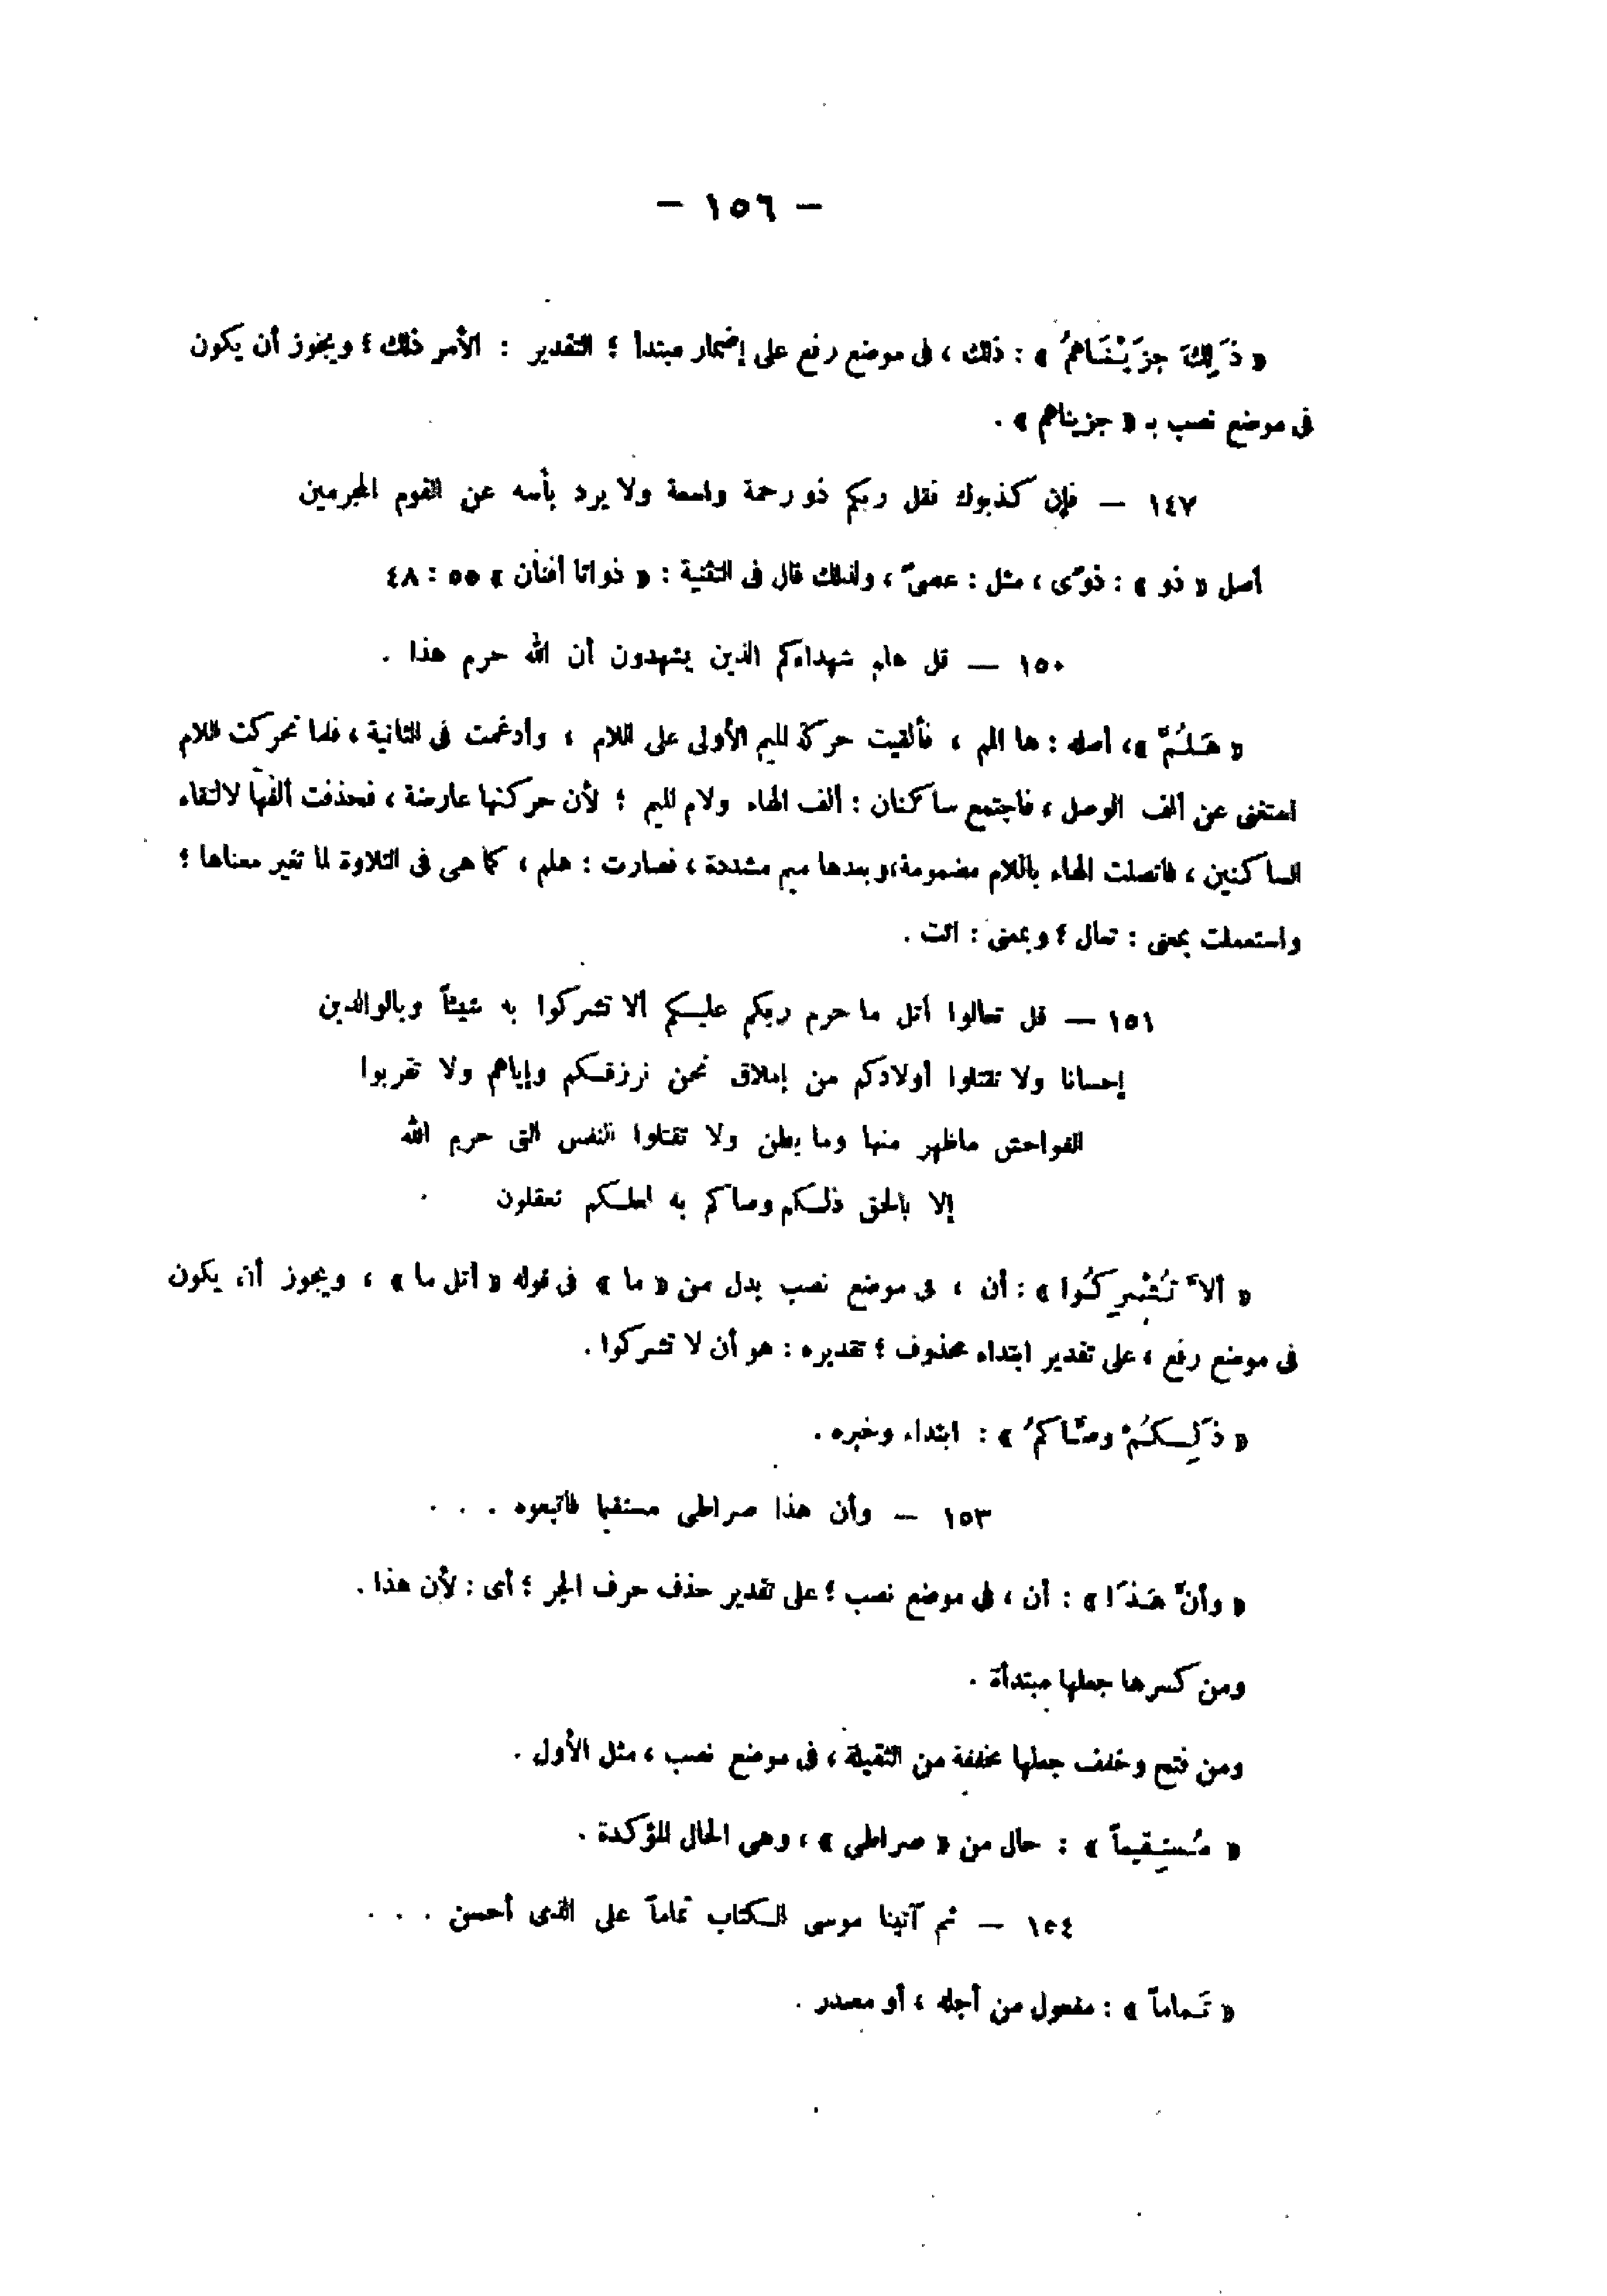 — ١٥٦ —
« ذَلِكَ جزَيْنَاهمُ » : ذلك ، فى موضع رفع على إضمار مبتدأ ؛ التقدير : الأمر ذلك ؛ ويجوز أن يكون
فى موضع نصب بـ « جزيناهم » .
١٤٧ — فإن كذبوك فقل ربكم ذو رحمة واسعة ولا يرد بأسه عن القوم المجرمين
أصل « ذو » : ذوًى ، مثل : عصىً ، ولذلك قال فى التثنية : « ذواتا أفنان » ٥٥ : ٤٨
١٥٠ — قل هلم شهداءكم الذين يشهدون أن الله حرم هذا .
« هَلُمَّ » ، أصله : ها المم ، فألقيت حركة الميم الأولى على اللام ، وأدغمت فى الثانية ، فلما تحركت اللام
استغنى عن ألف الوصل ، فاجتمع ساكنان : ألف الهاء ولام الميم ؛ لأن حركتها عارضة ، فحذفت ألفها لالتقاء
الساكنين ، فاتصلت الهاء باللام مضمومة ، وبعدها ميم مشددة ، فصارت : هلم ، كما هى فى التلاوة لما تغير معناها ؛
واستعملت بمعنى : تعال ؛ وبمعنى : ائت .
١٥١ — قل تعالوا أتل ما حرم ربكم عليكم ألا تشركوا به شيئاً وبالوالدين
إحسانا ولا تقتلوا أولادكم من إملاق نحن نرزقكم وإياهم ولا تقربوا
الفواحش ماظهر منها وما بطن ولا تقتلوا النفس التى حرم الله
إلا بالحق ذلكم وصاكم به لعلكم تعقلون
« ألاَّ تُشْرِكُوا » : أن ، فى موضع نصب بدل من « ما » فى قوله « أتل ما » ، ويجوز أن يكون
فى موضع رفع ، على تقدير ابتداء محذوف ؛ تقديره : هو أن لا تشركوا .
« ذَلِكُمْ وصَّاكمُ » : ابتداء وخبره .
١٥٣ — وأن هذا صراطى مستقيما فاتبعوه . . .
« وأنَّ هَذَا » : أن ، فى موضع نصب ؛ على تقدير حذف حرف الجر ؛ أى : لأن هذا .
ومن كسرها جعلها مبتدأة .
ومن فتح وخفف جعلها مخففة من الثقيلة ، فى موضع نصب ، مثل الأول .
« مُستقِيماً » : حال من « صراطى » ، وهى الحال المؤكدة .
١٥٤ — ثم آتينا موسى الكتاب تماماً على الذى أحسن . . .
« تَماماً » : مفعول من أجله ، أو مصدر .